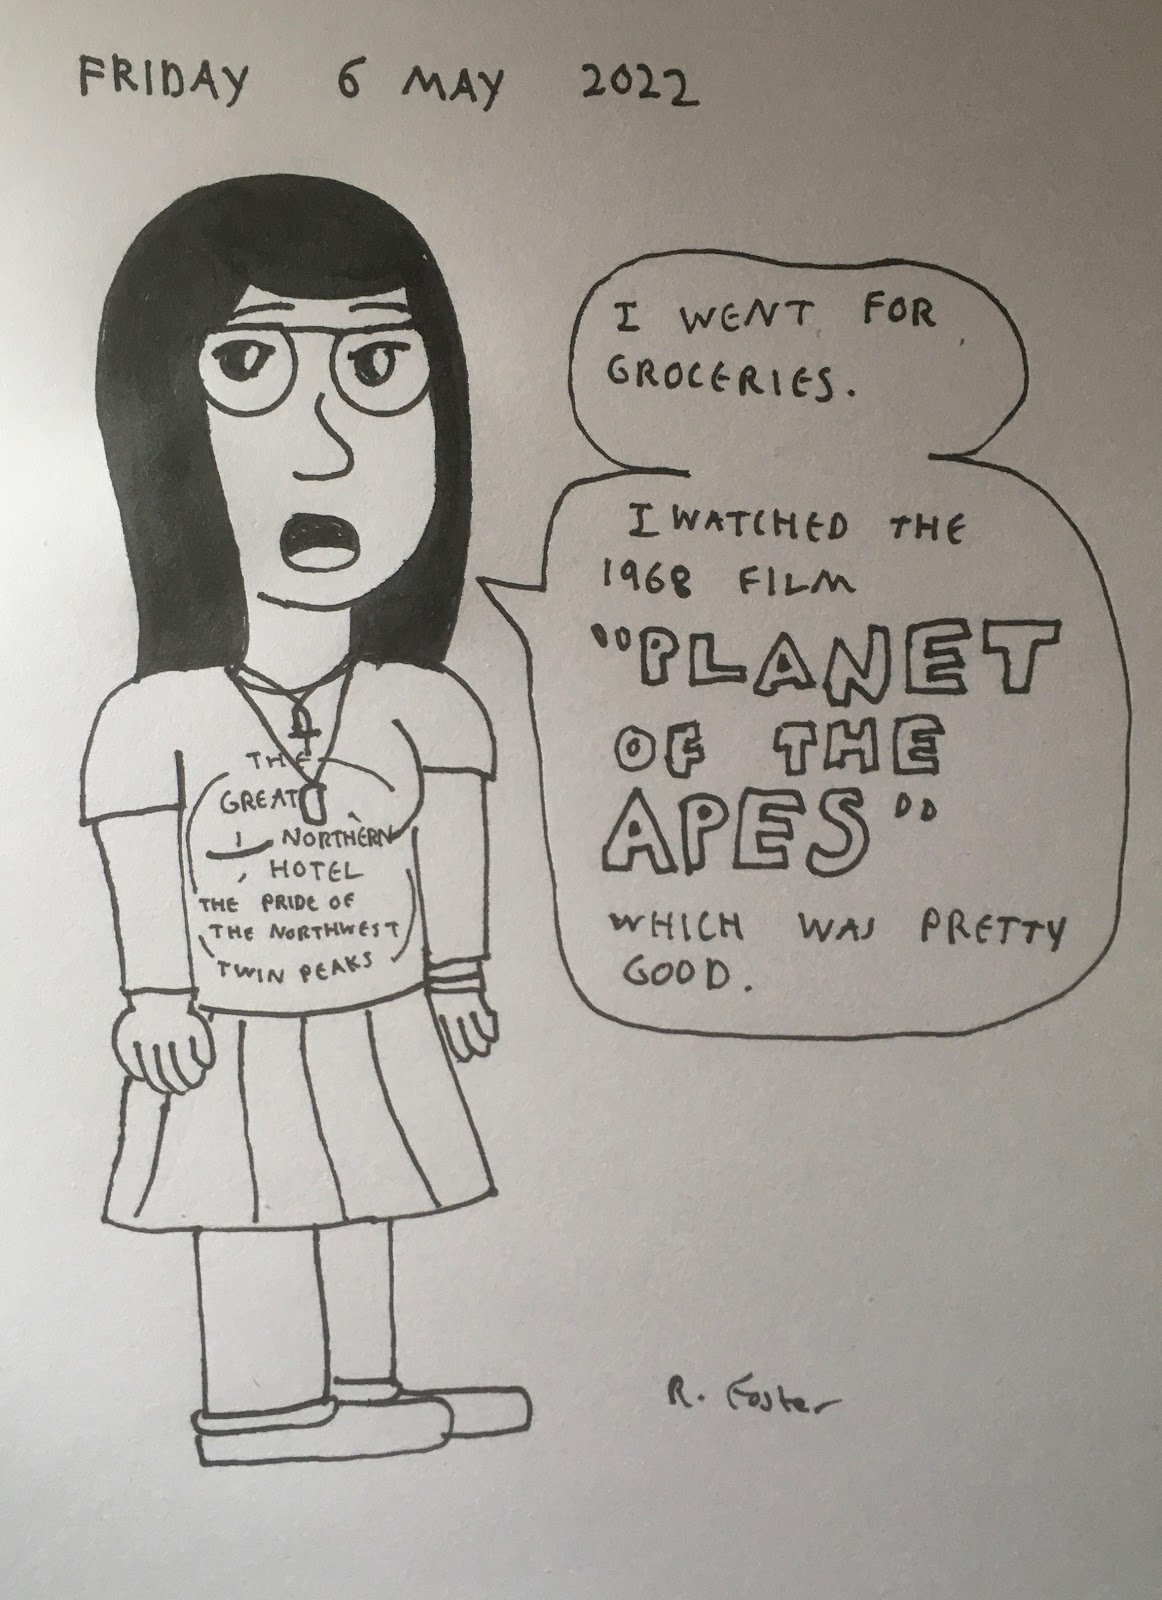 FRIDAY 6 MAY 2022
I WENT FOR
GROCERIES.
I WATCHED THE
1968 FILM
"PLANET
OF THE
APES"
WHICH WAS PRETTY
GOOD.
THE
GREAT
NORTHERN
HOTEL
THE PRIDE OF
THE NORTHWEST
TWIN PEAKS
R. Foster